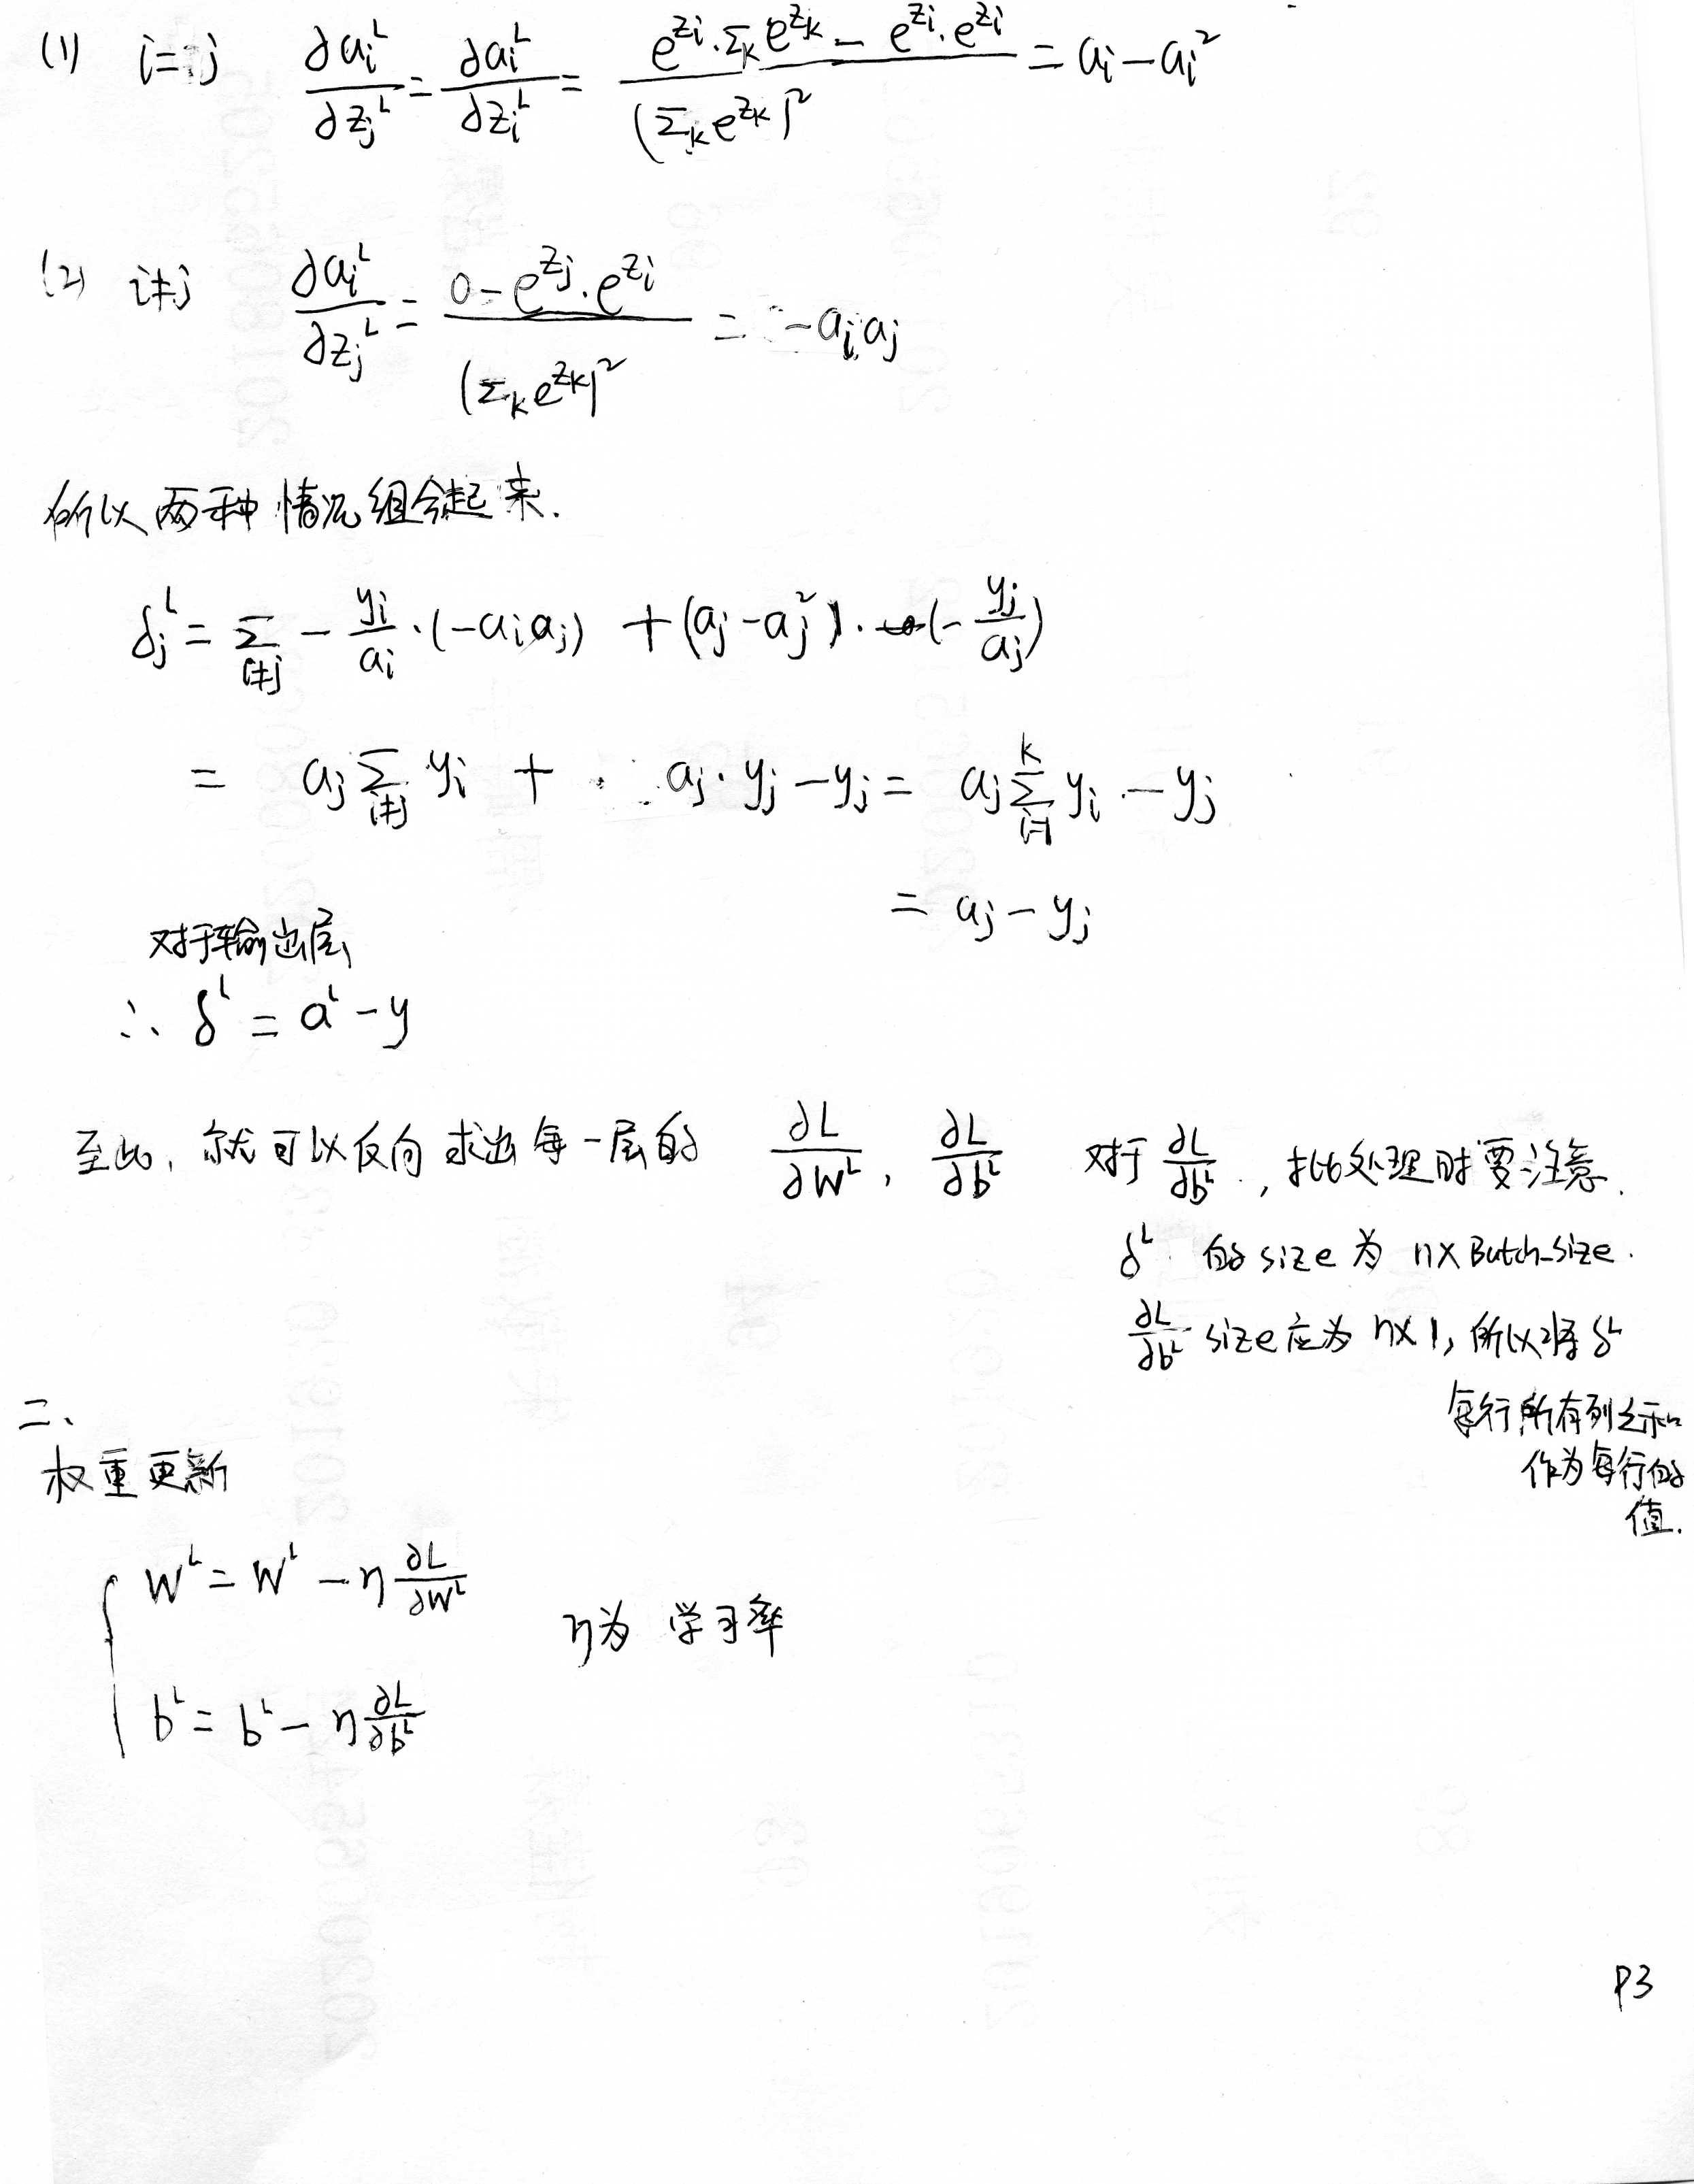 (1) i=j ∂aᵢᴸ/∂zⱼᴸ = ∂aᵢᴸ/∂zᵢᴸ = (e^{zᵢ}·Σₖe^{zₖ} − e^{zᵢ}·e^{zᵢ})/(Σₖe^{zₖ})² = aᵢ − aᵢ²
(2) i≠j ∂aᵢᴸ/∂zⱼᴸ = (0 − e^{zⱼ}·e^{zᵢ})/(Σₖe^{zₖ})² = −aᵢaⱼ
所以两种情况组合起来.
δⱼᴸ = Σ_{i≠j} − yᵢ/aᵢ·(−aᵢaⱼ) + (aⱼ−aⱼ²)·(−yⱼ/aⱼ)
= aⱼ Σ_{i≠j} yᵢ + aⱼ·yⱼ − yⱼ = aⱼ Σ_{i=1}^{k} yᵢ − yⱼ
= aⱼ − yⱼ
对于输出层
∴ δᴸ = aᴸ − y
至此, 就可以反向求出每一层的 ∂L/∂Wᴸ, ∂L/∂bᴸ 对于 ∂L/∂bᴸ, 批处理时要注意.
δᴸ 的size为 n×Batch_size.
∂L/∂bᴸ size应为 n×1, 所以将δᴸ
每行所有列之和
作为每行的
值.
二、
权重更新
Wᴸ = Wᴸ − η ∂L/∂Wᴸ
η为 学习率
bᴸ = bᴸ − η ∂L/∂bᴸ
P3